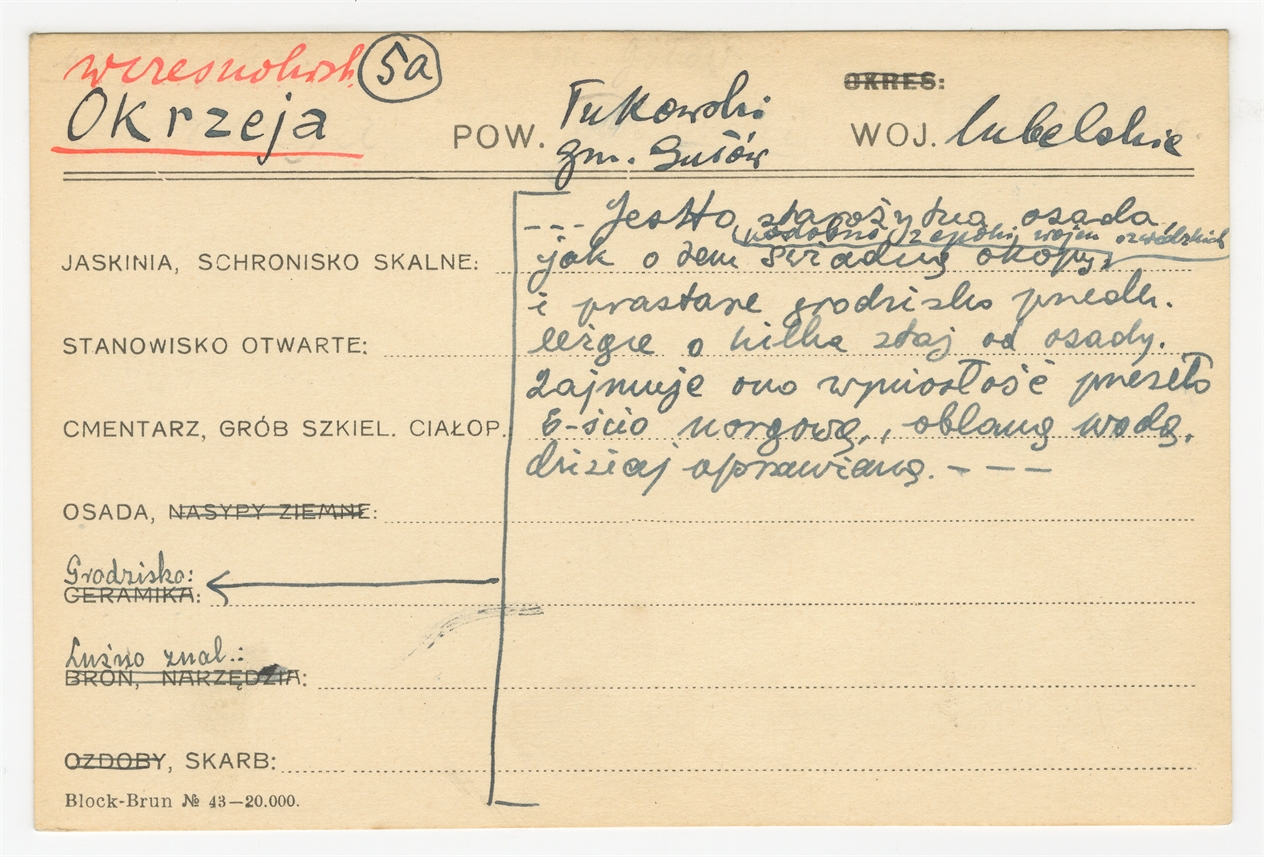 wczesnohist. 5a
Okrzeja
POW. Łukowski
gm. Gułów
OKRES:
WOJ. lubelskie
--- Jest to starożytna osada
podobno z epoki wojen szwedzkich
jak o tem świadczą okopy,
i prastare grodzisko
leżące o kilka staj od osady.
Zajmuje ono wyniosłość przeszło
6-ścio morgową, oblaną wodą,
dzisiaj uprawianą. ---
JASKINIA, SCHRONISKO SKALNE:
STANOWISKO OTWARTE:
CMENTARZ, GRÓB SZKIEL. CIAŁOP.
OSADA, NASYPY ZIEMNE:
Grodzisko:
CERAMIKA:
Luźno znal.:
BROŃ, NARZĘDZIA:
OZDOBY, SKARB:
Block-Brun № 43—20.000.